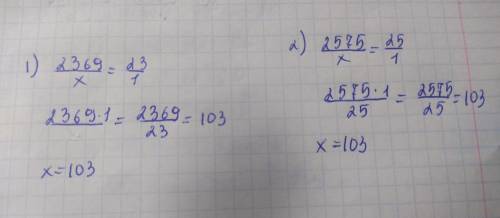 1) 2369/x = 23/1
2369·1/ = 2369/23 = 103
x=103
2) 2575/x = 25/1
2575·1/25 = 2575/25 = 103
x=103